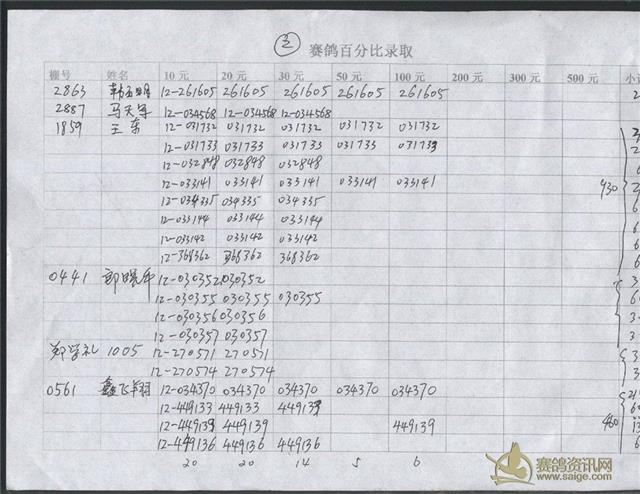 ③ 赛鸽百分比录取
棚号 姓名 10元 20元 30元 50元 100元 200元 300元 500元 小计
2863 12-261605 261605 261605 261605 261605
2887 马天军 12-034568 12-034568 12-034568
1859 王东 12-031732 031732 031732 031732 031732
12-031733 031733 031733 031733 031733
12-032848 032848 032848
12-033141 033141 033141 033141 033141 930
12-034335 034335 034335
12-033144 033144 033144
12-033142 033142 033142
12-368362 368362 368362
0441 12-030352 030352
12-030355 030355 030355
12-030356 030356
12-030357 030357
郑学礼 1005 12-270571 270571
12-270574 270574
0561 鑫飞翔 12-034370 034370 034370 034370 034370
12-449133 449133 449139
12-449139 449139 449139 460
12-449136 449136 449136
20 20 14 5 6
赛鸽资讯网
www.saige.com